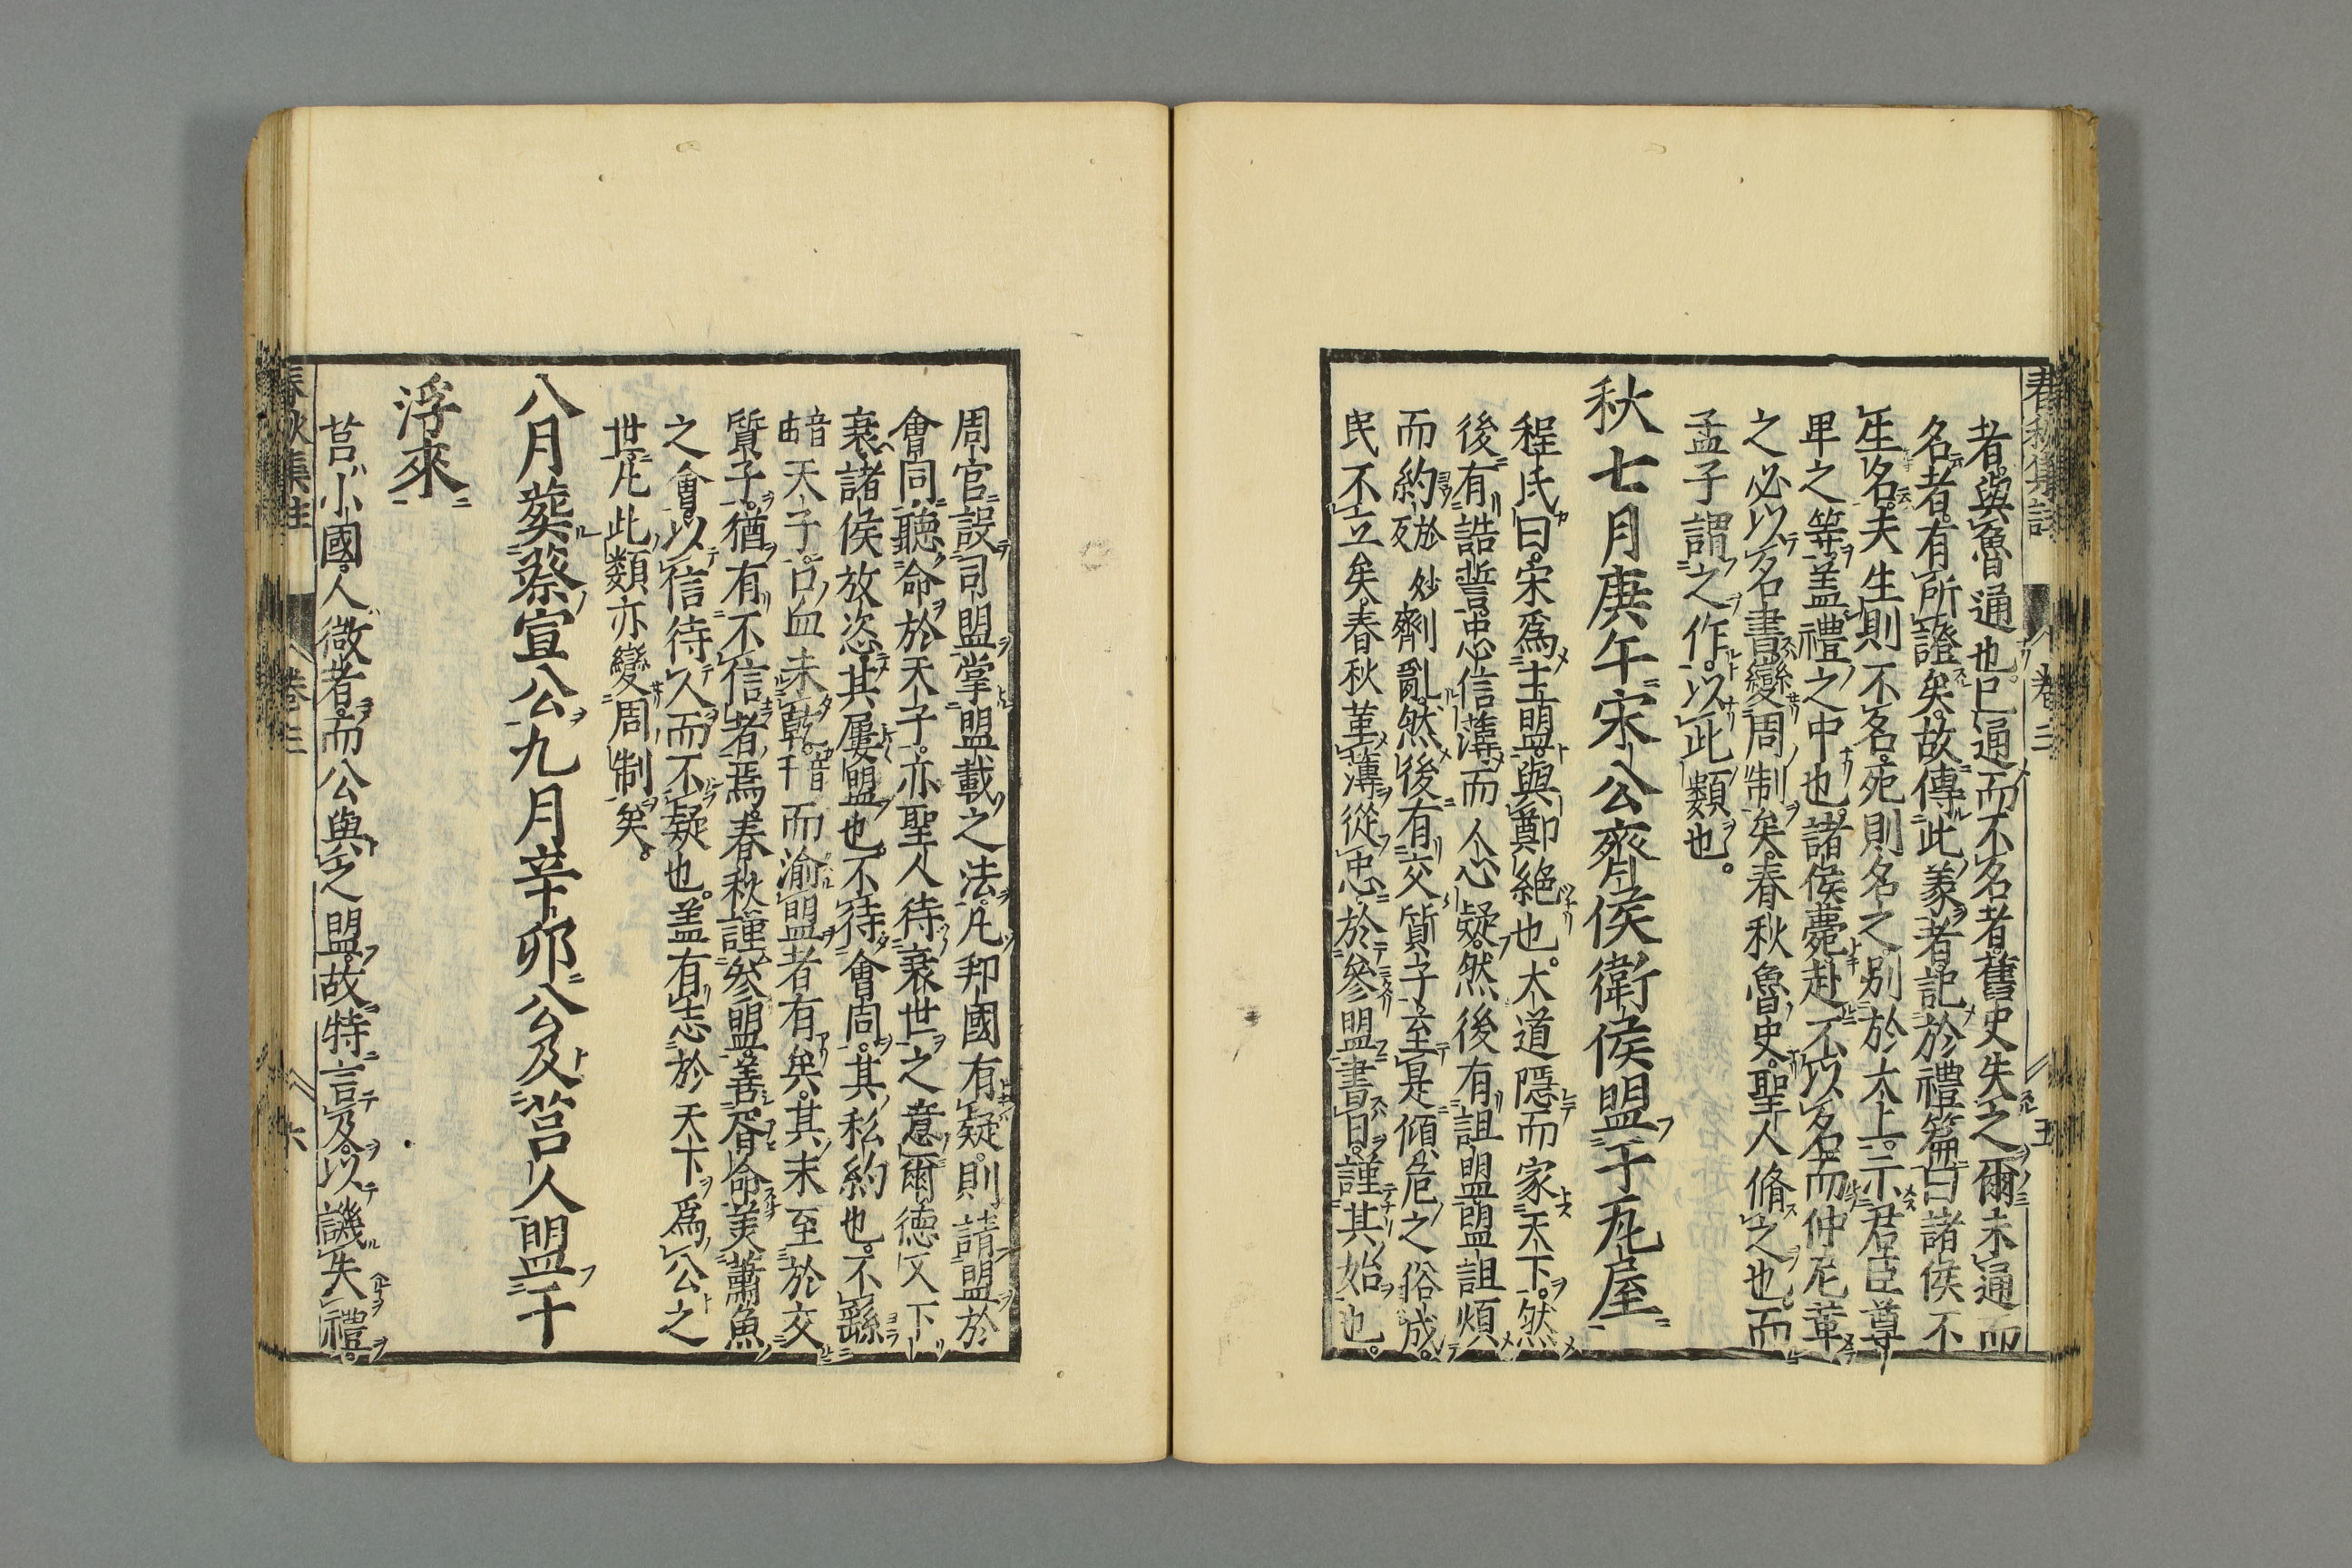 者與魯通也已通而不名者舊史失之爾未通而
名者有所證矣故傳此義者記於禮篇曰諸侯不
生名夫生則不名死則名之别於太上示君臣尊
卑之等蓋禮之中也諸侯薨赴不以名而仲尼革
之必以名書變周制矣春秋魯史聖人脩之也而
孟子謂之作以此類也
秋七月庚午宋公齊侯衛侯盟于瓦屋
程氏曰宋爲主盟與鄭絶也大道隱而家天下然
後有誥誓忠信薄而人心疑然後有詛盟盟詛煩
而約劑亂然後有交質子至是傾危之俗成
民不立矣春秋革薄從忠於參盟書日謹其始也
周官設司盟掌盟載之法凡邦國有疑則請盟於
會同聽命於天子亦聖人待衰世之意爾德又下
衰諸侯放恣其屢盟也不待會同其私約也不繇
天子口血未乾而渝盟者有矣其末至於交
質子猶有不信者焉春秋謹參盟善胥命美蕭魚
之會以信待人而不疑也蓋有志於天下爲公之
世凡此類亦變周制矣
八月葬蔡宣公九月辛卯公及莒人盟于
浮來
莒小國人微者而公與之盟故特言及以譏失禮
春秋集註 卷三 五
春秋集註 卷三 六